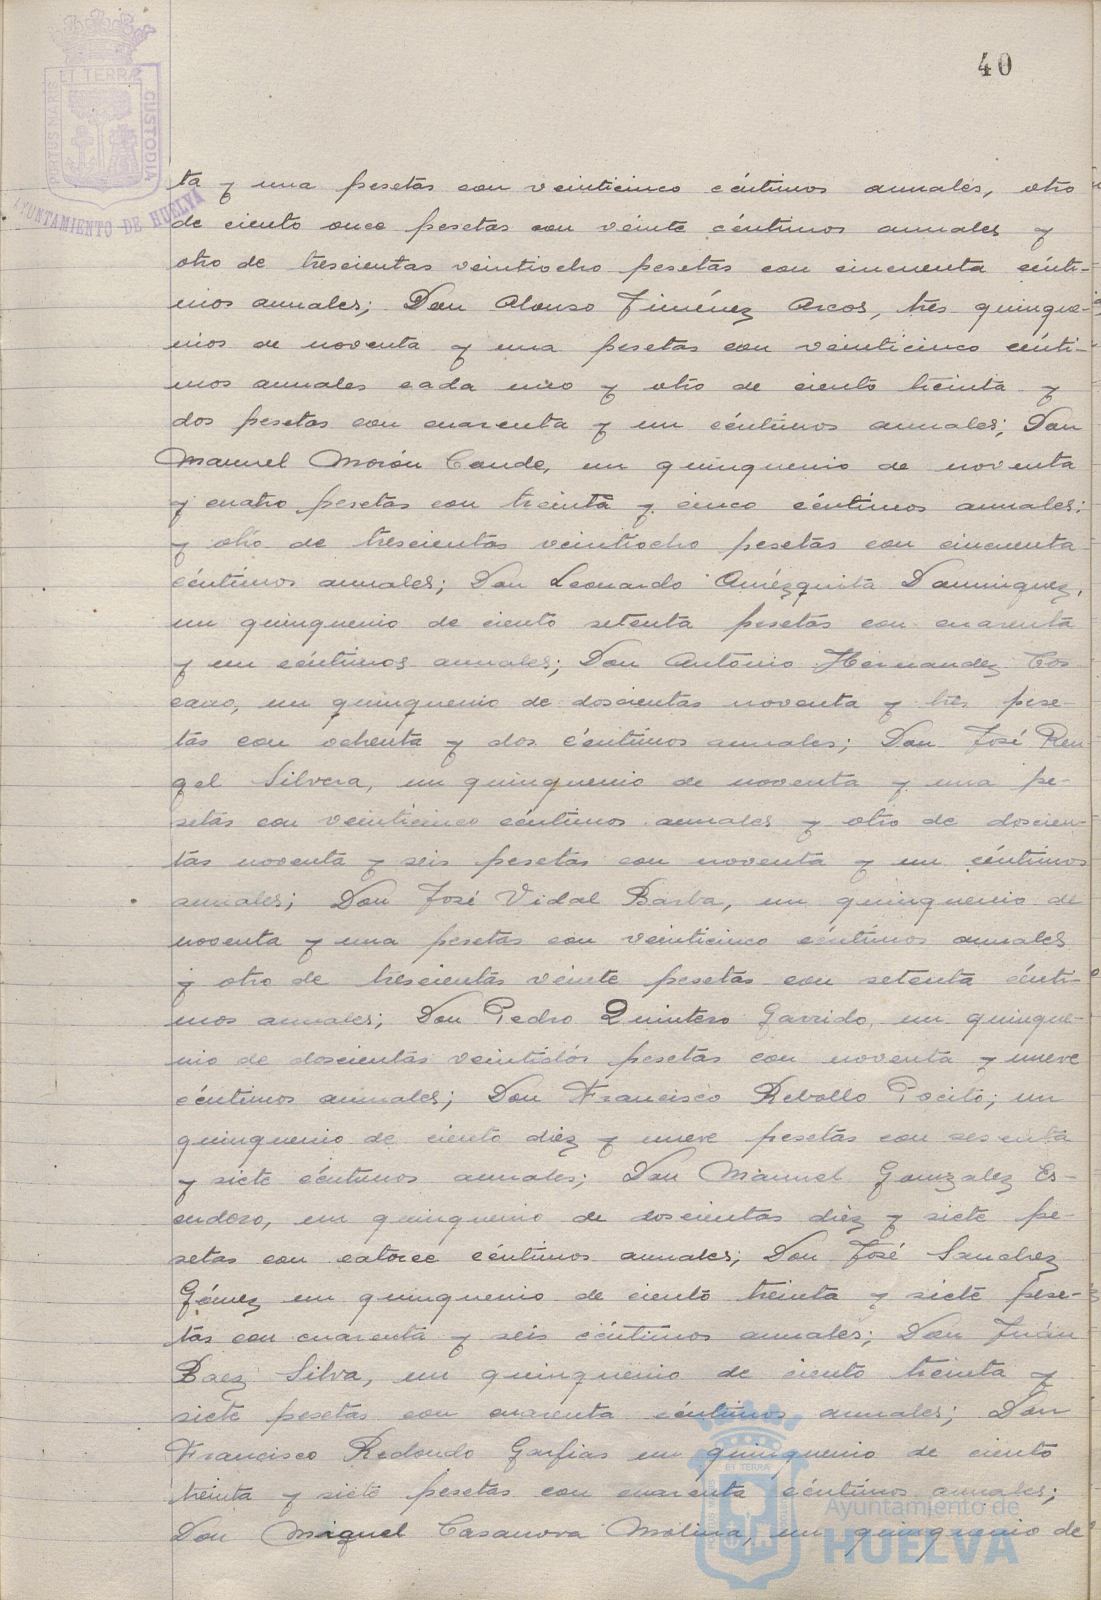 40
PORTUS MARIS ET TERRÆ CUSTODIA
AYUNTAMIENTO DE HUELVA
ta y una pesetas con veinticinco céntimos anuales, otro
de ciento once pesetas con veinte céntimos anuales y
otro de trescientas veintiocho pesetas con cincuenta cénti-
mos anuales; Don Alonso Jiménez Arcos, tres quinque-
nios de noventa y una pesetas con veinticinco cénti-
mos anuales cada uno y otro de ciento treinta y
dos pesetas con cuarenta y un céntimos anuales; Don
Manuel Morón Conde, un quinquenio de noventa
y cuatro pesetas con treinta y cinco céntimos anuales;
y otro de trescientas veintiocho pesetas con cincuenta
céntimos anuales; Don Leonardo Amézquita Dominguez,
un quinquenio de ciento setenta pesetas con cuarenta
y un céntimos anuales; Don Antonio Hernandez Cos
cano, un quinquenio de doscientas noventa y tres pese-
tas con ochenta y dos céntimos anuales; Don José Ren
gel Silvera, un quinquenio de noventa y una pe-
setas con veinticinco céntimos anuales y otro de doscien-
tas noventa y seis pesetas con noventa y un céntimos
anuales; Don José Vidal Barba, un quinquenio de
noventa y una pesetas con veinticinco céntimos anuales
y otro de trescientas veinte pesetas con setenta cénti-
mos anuales; Don Pedro Quintero Garrido, un quinque-
nio de doscientas veintidós pesetas con noventa y nueve
céntimos anuales; Don Francisco Rebollo Pocito; un
quinquenio de ciento diez y nueve pesetas con sesenta
y siete céntimos anuales; Don Manuel Gonzalez Es-
cudero, un quinquenio de doscientas diez y siete pe-
setas con catorce céntimos anuales; Don José Sanchez
Gómez un quinquenio de ciento treinta y siete pese-
tas con cuarenta y seis céntimos anuales; Don Juan
Baez Silva, un quinquenio de ciento treinta y
siete pesetas con cuarenta céntimos anuales; Don
Francisco Redondo Garfias un quinquenio de ciento
treinta y siete pesetas con cuarenta céntimos anuales;
Don Miguel Casanova Molina, un quinquenio de
Ayuntamiento de
HUELVA